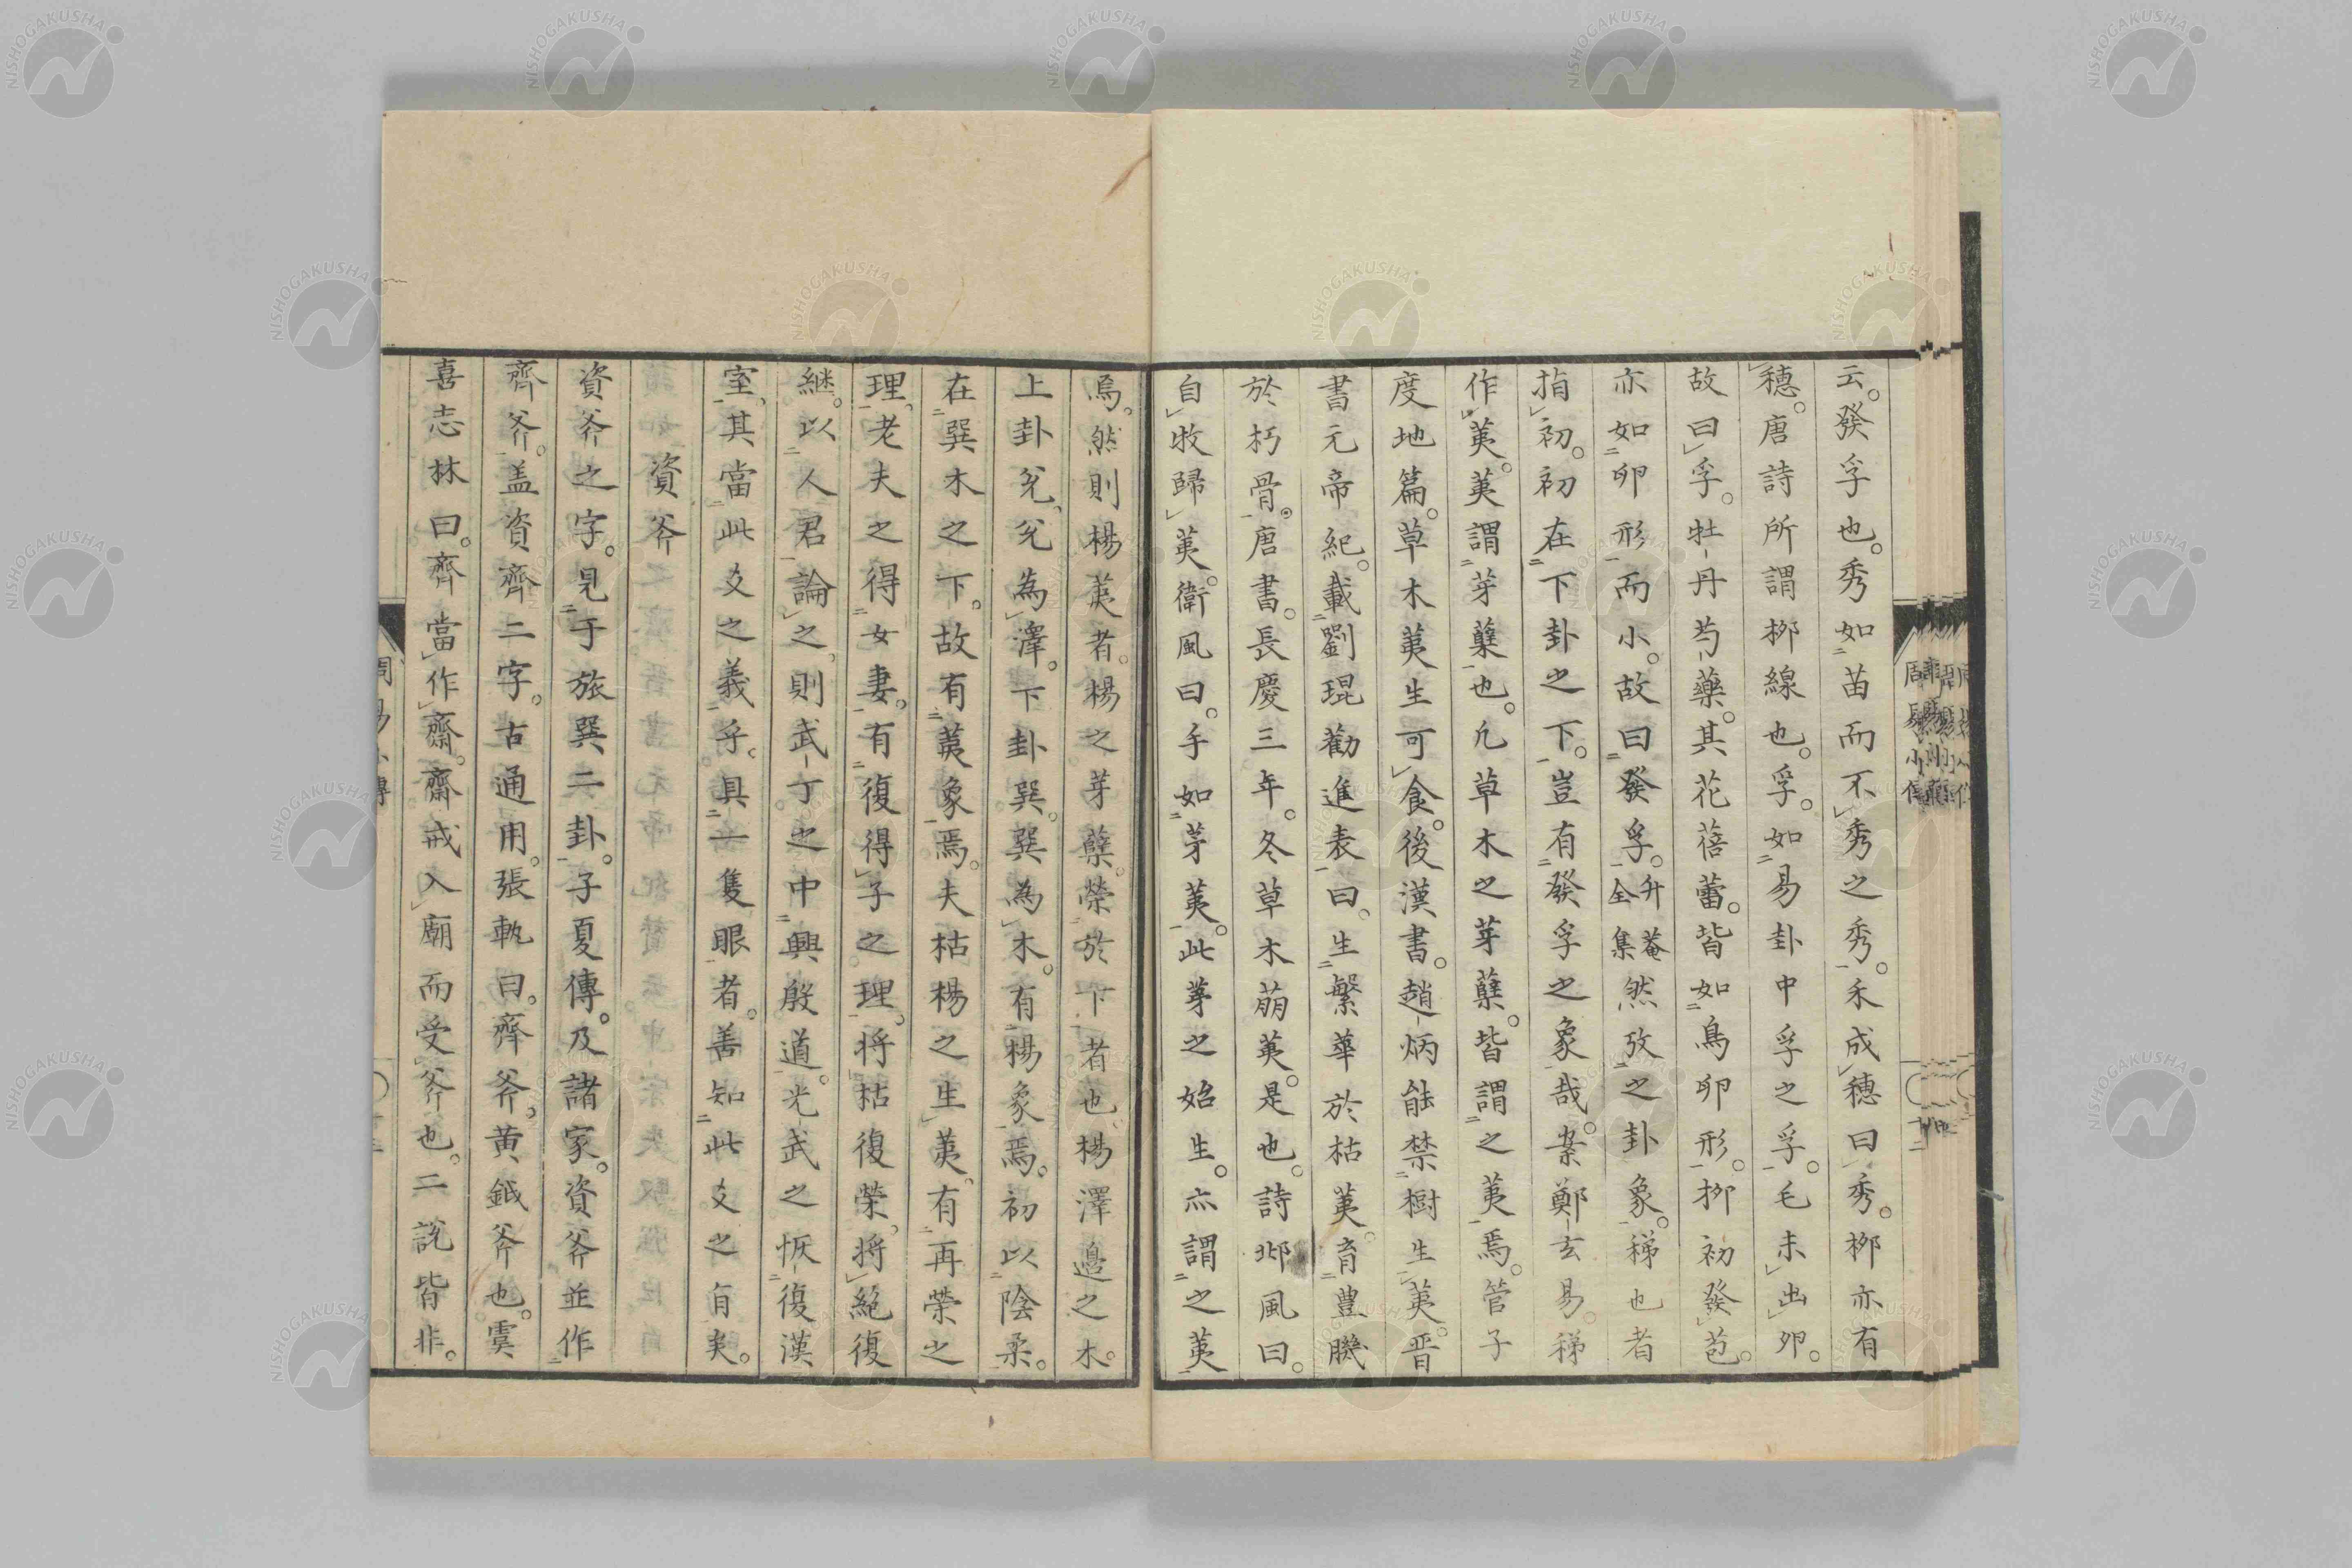 云發孚也秀如苗而不秀之秀禾成穗曰秀栁亦有
穗唐詩所謂栁線也孚如易卦中孚之孚毛未出卵
故曰孚牡丹芍藥其花蓓蕾皆如鳥卵形栁初發苞
亦如卵形而小故曰發孚升菴全集然攷之卦象稊也者
指初初在下卦之下豈有發孚之象哉案鄭玄易稊
作荑荑謂芽蘖也凢草木之芽蘖皆謂之荑焉管子
度地篇草木荑生可食後漢書趙炳能禁樹生荑晋
書元帝紀載劉琨勸進表曰生繁華於枯荑育豊肌
於朽骨唐書長慶三年冬草木萠荑是也詩邶風曰
自牧歸荑衛風曰手如茅荑此茅之始生亦謂之荑
焉然則楊荑者楊之芽蘖榮於下者也楊澤邉之木
上卦兊兊為澤下卦巽巽為木有楊象焉初以陰柔
在巽木之下故有荑象焉夫枯楊之生荑有再榮之
理老夫之得女妻有復得子之理将枯復榮将絕復
継以人君論之則武丁之中興殷道光武之恢復漢
室其當此爻之義乎具一隻眼者善知此爻之㫖矣
資斧
資斧之字見于旅巽二卦子夏傳及諸家資斧並作
齊斧盖資齊二字古通用張軌曰齊斧黄鉞斧也虞
喜志林曰齊當作齋齋戒入廟而受斧也二說皆非
NISHOGAKUSHA